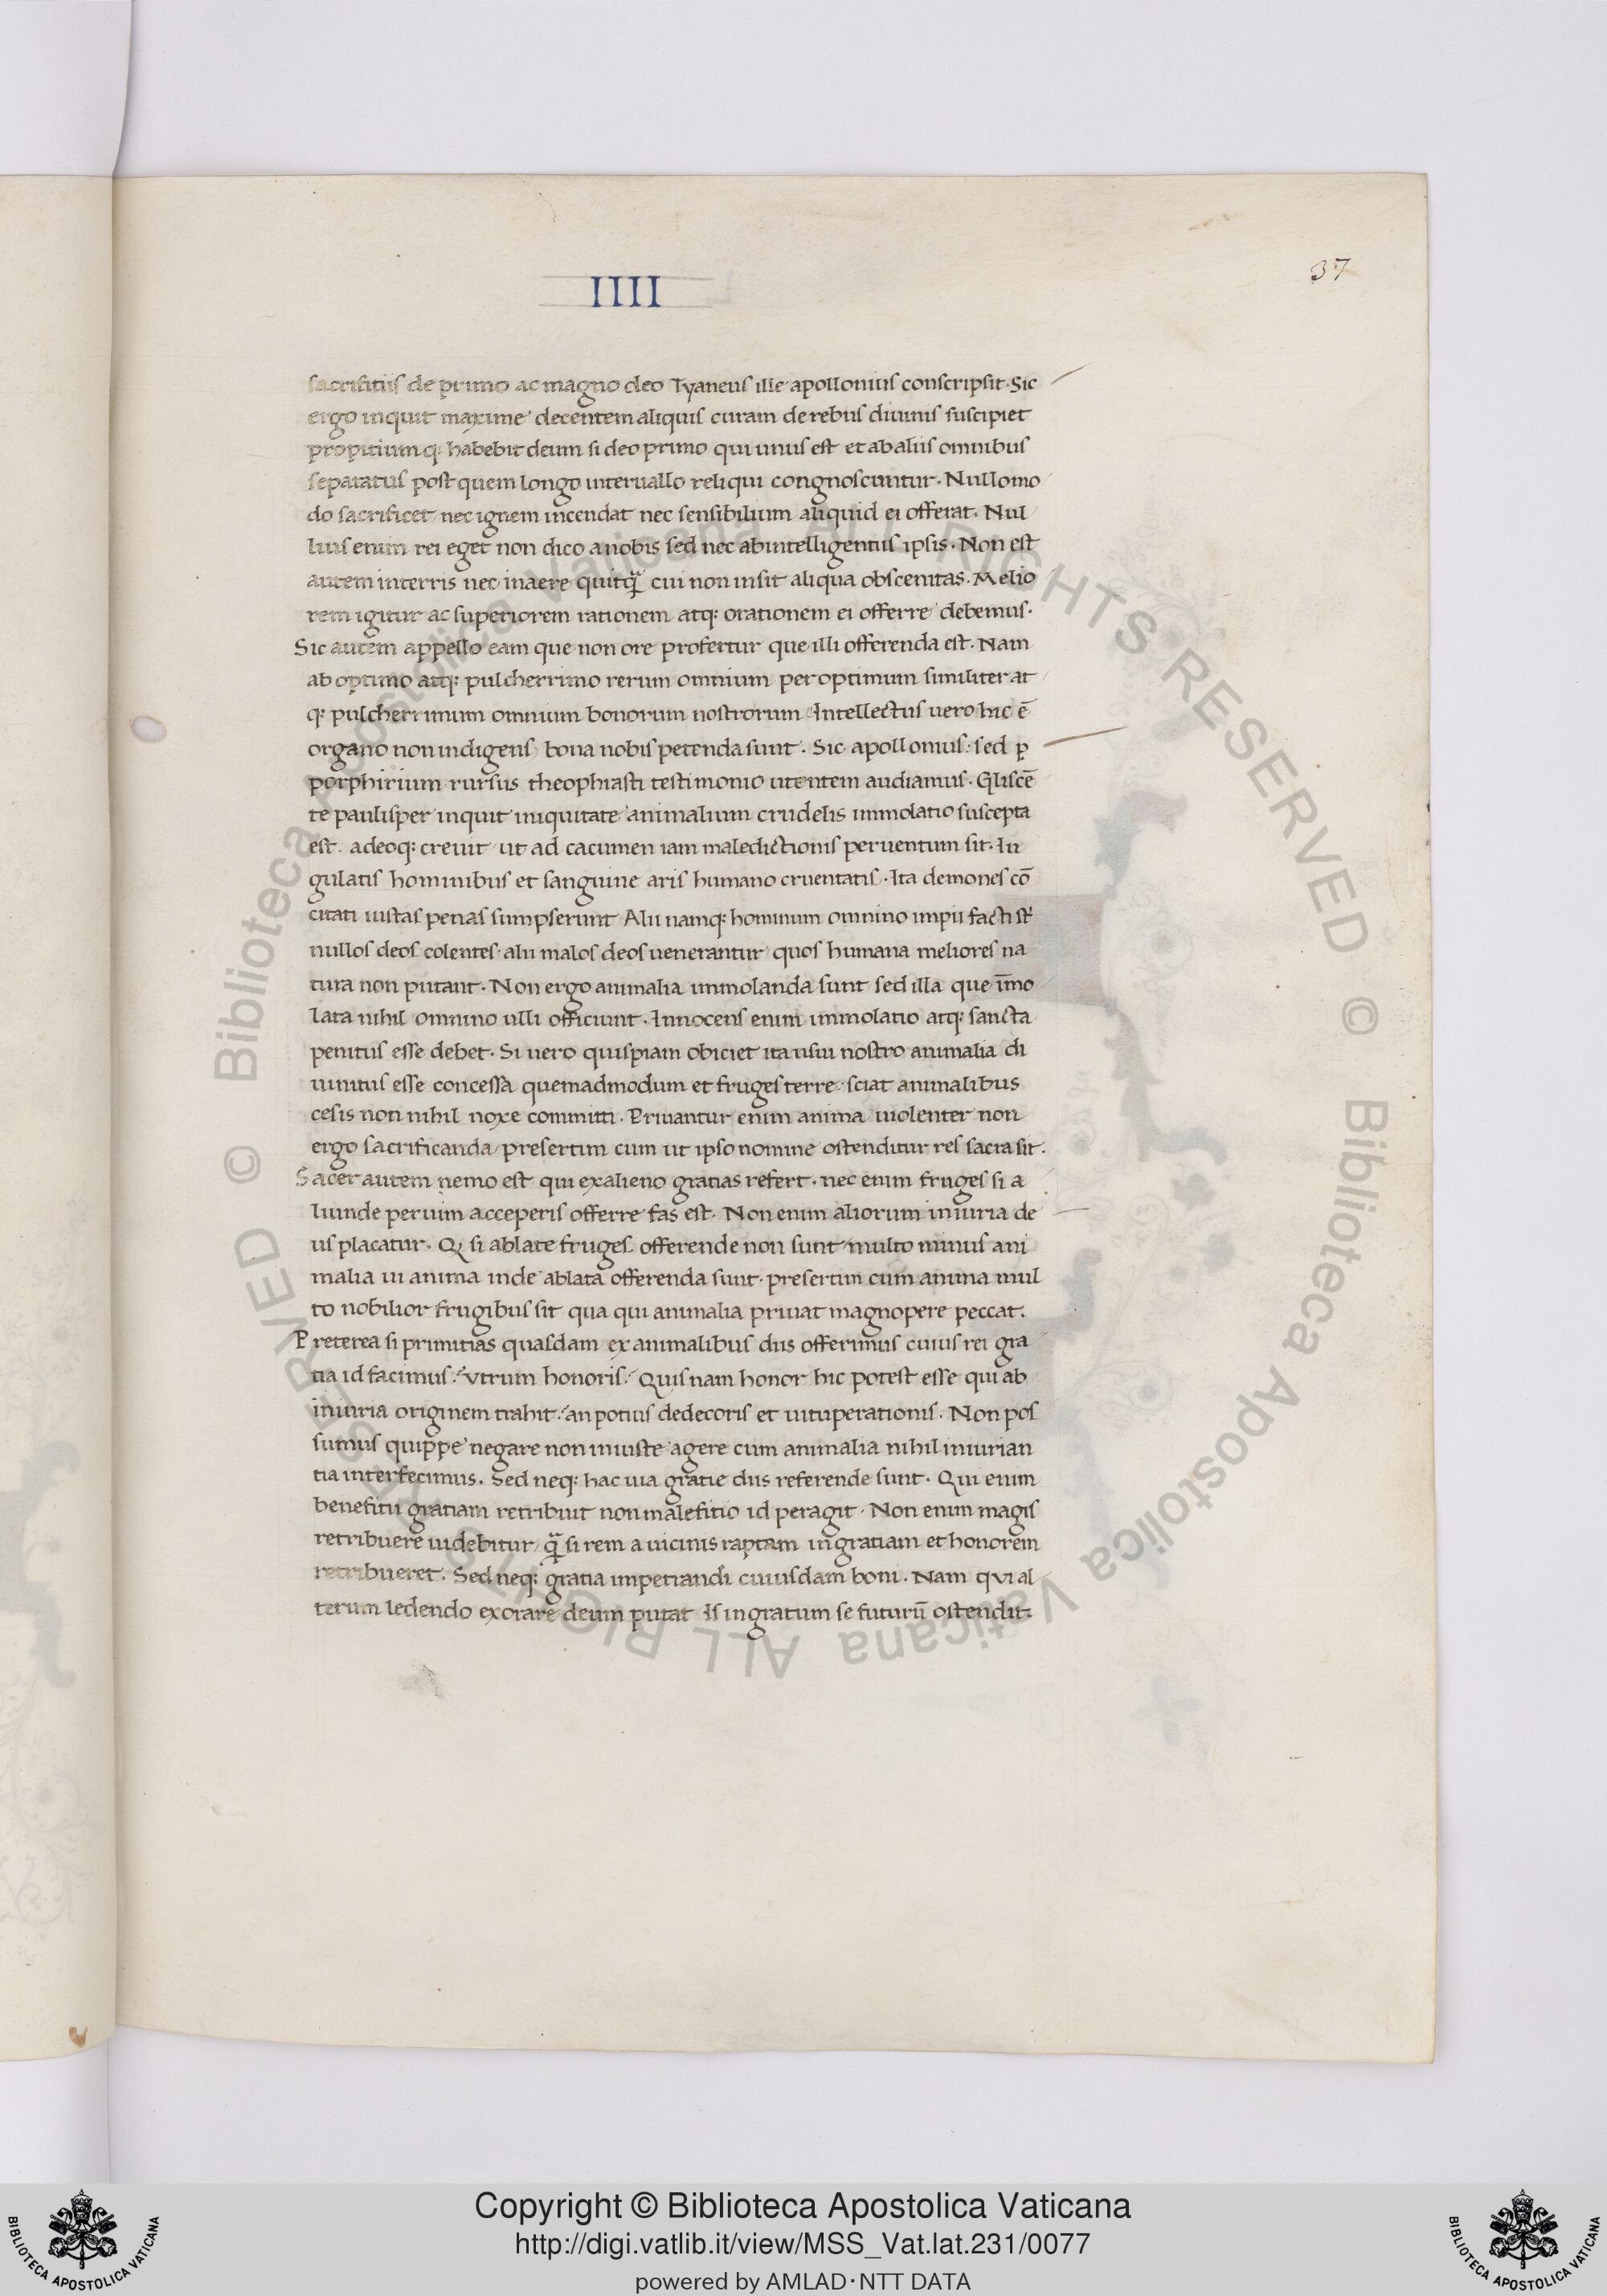 IIII
37
sacrifitiis de primo ac magno deo Tyaneus ille apollonius conscripsit. Sic
ergo inquit maxime decentem aliquis curam de rebus diuinis suscipiet
propitiumq; habebit deum si deo primo qui unus est et ab aliis omnibus
separatus post quem longo interuallo reliqui congnoscuntur. Nullo mo
do sacrificet nec ignem incendat nec sensibilium aliquid ei offerat. Nul
lius enim rei eget non dico a nobis sed nec ab intelligentiis ipsis. Non est
autem in terris nec in aere quitq̄ cui non insit aliqua obscenitas. Melio
rem igitur ac superiorem rationem atq; orationem ei offerre debemus.
Sic autem appello eam que non ore profertur que illi offerenda est. Nam
ab optimo atq; pulcherrimo rerum omnium per optimum similiter at
q; pulcherrimum omnium bonorum nostrorum Intellectus uero hic ē
organo non indigens bona nobis petenda sunt. Sic apollonius: sed ꝑ
porphirium rursus theophrasti testimonio utentem audiamus. Gliscē
te paulisper inquit iniquitate animalium crudelis immolatio suscepta
est. adeoq; creuit ut ad cacumen iam maledictionis peruentum sit. Iu
gulatis hominibus et sanguine aris humano cruentatis. Ita demones cō
citati iustas penas sumpserunt Alii namq; hominum omnino impii facti st̄
nullos deos colentes. alii malos deos uenerantur quos humana meliores na
tura non putant. Non ergo animalia immolanda sunt sed illa que īmo
lata nihil omnino ulli officiunt. Innocens enim immolatio atq; sancta
penitus esse debet. Si uero quispiam obiciet ita usui nostro animalia di
uinitus esse concessa quemadmodum et fruges terre: sciat animalibus
cesis non nihil noxe committi. Priuantur enim anima uiolenter non
ergo sacrificanda presertim cum ut ipso nomine ostenditur res sacra sit.
Sacer autem nemo est qui ex alieno gratias refert. nec enim fruges si a
liunde per uim acceperis offerre fas est. Non enim aliorum iniuria de
us placatur. Q si ablate fruges offerende non sunt multo minus ani
malia ui anima inde ablata offerenda sunt. presertim cum anima mul
to nobilior frugibus sit qua qui animalia priuat magnopere peccat.
Preterea si primitias quasdam ex animalibus diis offerimus cuius rei gra
tia id facimus? utrum honoris? Quis nam honor hic potest esse qui ab
iniuria originem trahit? an potius dedecoris et uituperationis. Non pos
sumus quippe negare non iniuste agere cum animalia nihil iniurian
tia interfecimus. Sed neq; hac uia gratie diis referende sunt. Qui enim
benefitii gratiam retribuit non malefitio id peragit. Non enim magis
retribuere uidebitur, q̄ si rem a uicinis raptam in gratiam et honorem
retribueret. Sed neq; gratia impetrandi cuiusdam boni. Nam qui al
terum ledendo exorare deum putat Is ingratum se futurū ostendit.
© Biblioteca Apostolica Vaticana ALL RIGHTS RESERVED © Biblioteca Apostolica Vaticana ALL RIGHTS RESERVED
Copyright © Biblioteca Apostolica Vaticana
http://digi.vatlib.it/view/MSS_Vat.lat.231/0077
powered by AMLAD·NTT DATA
BIBLIOTECA APOSTOLICA VATICANA
BIBLIOTECA APOSTOLICA VATICANA